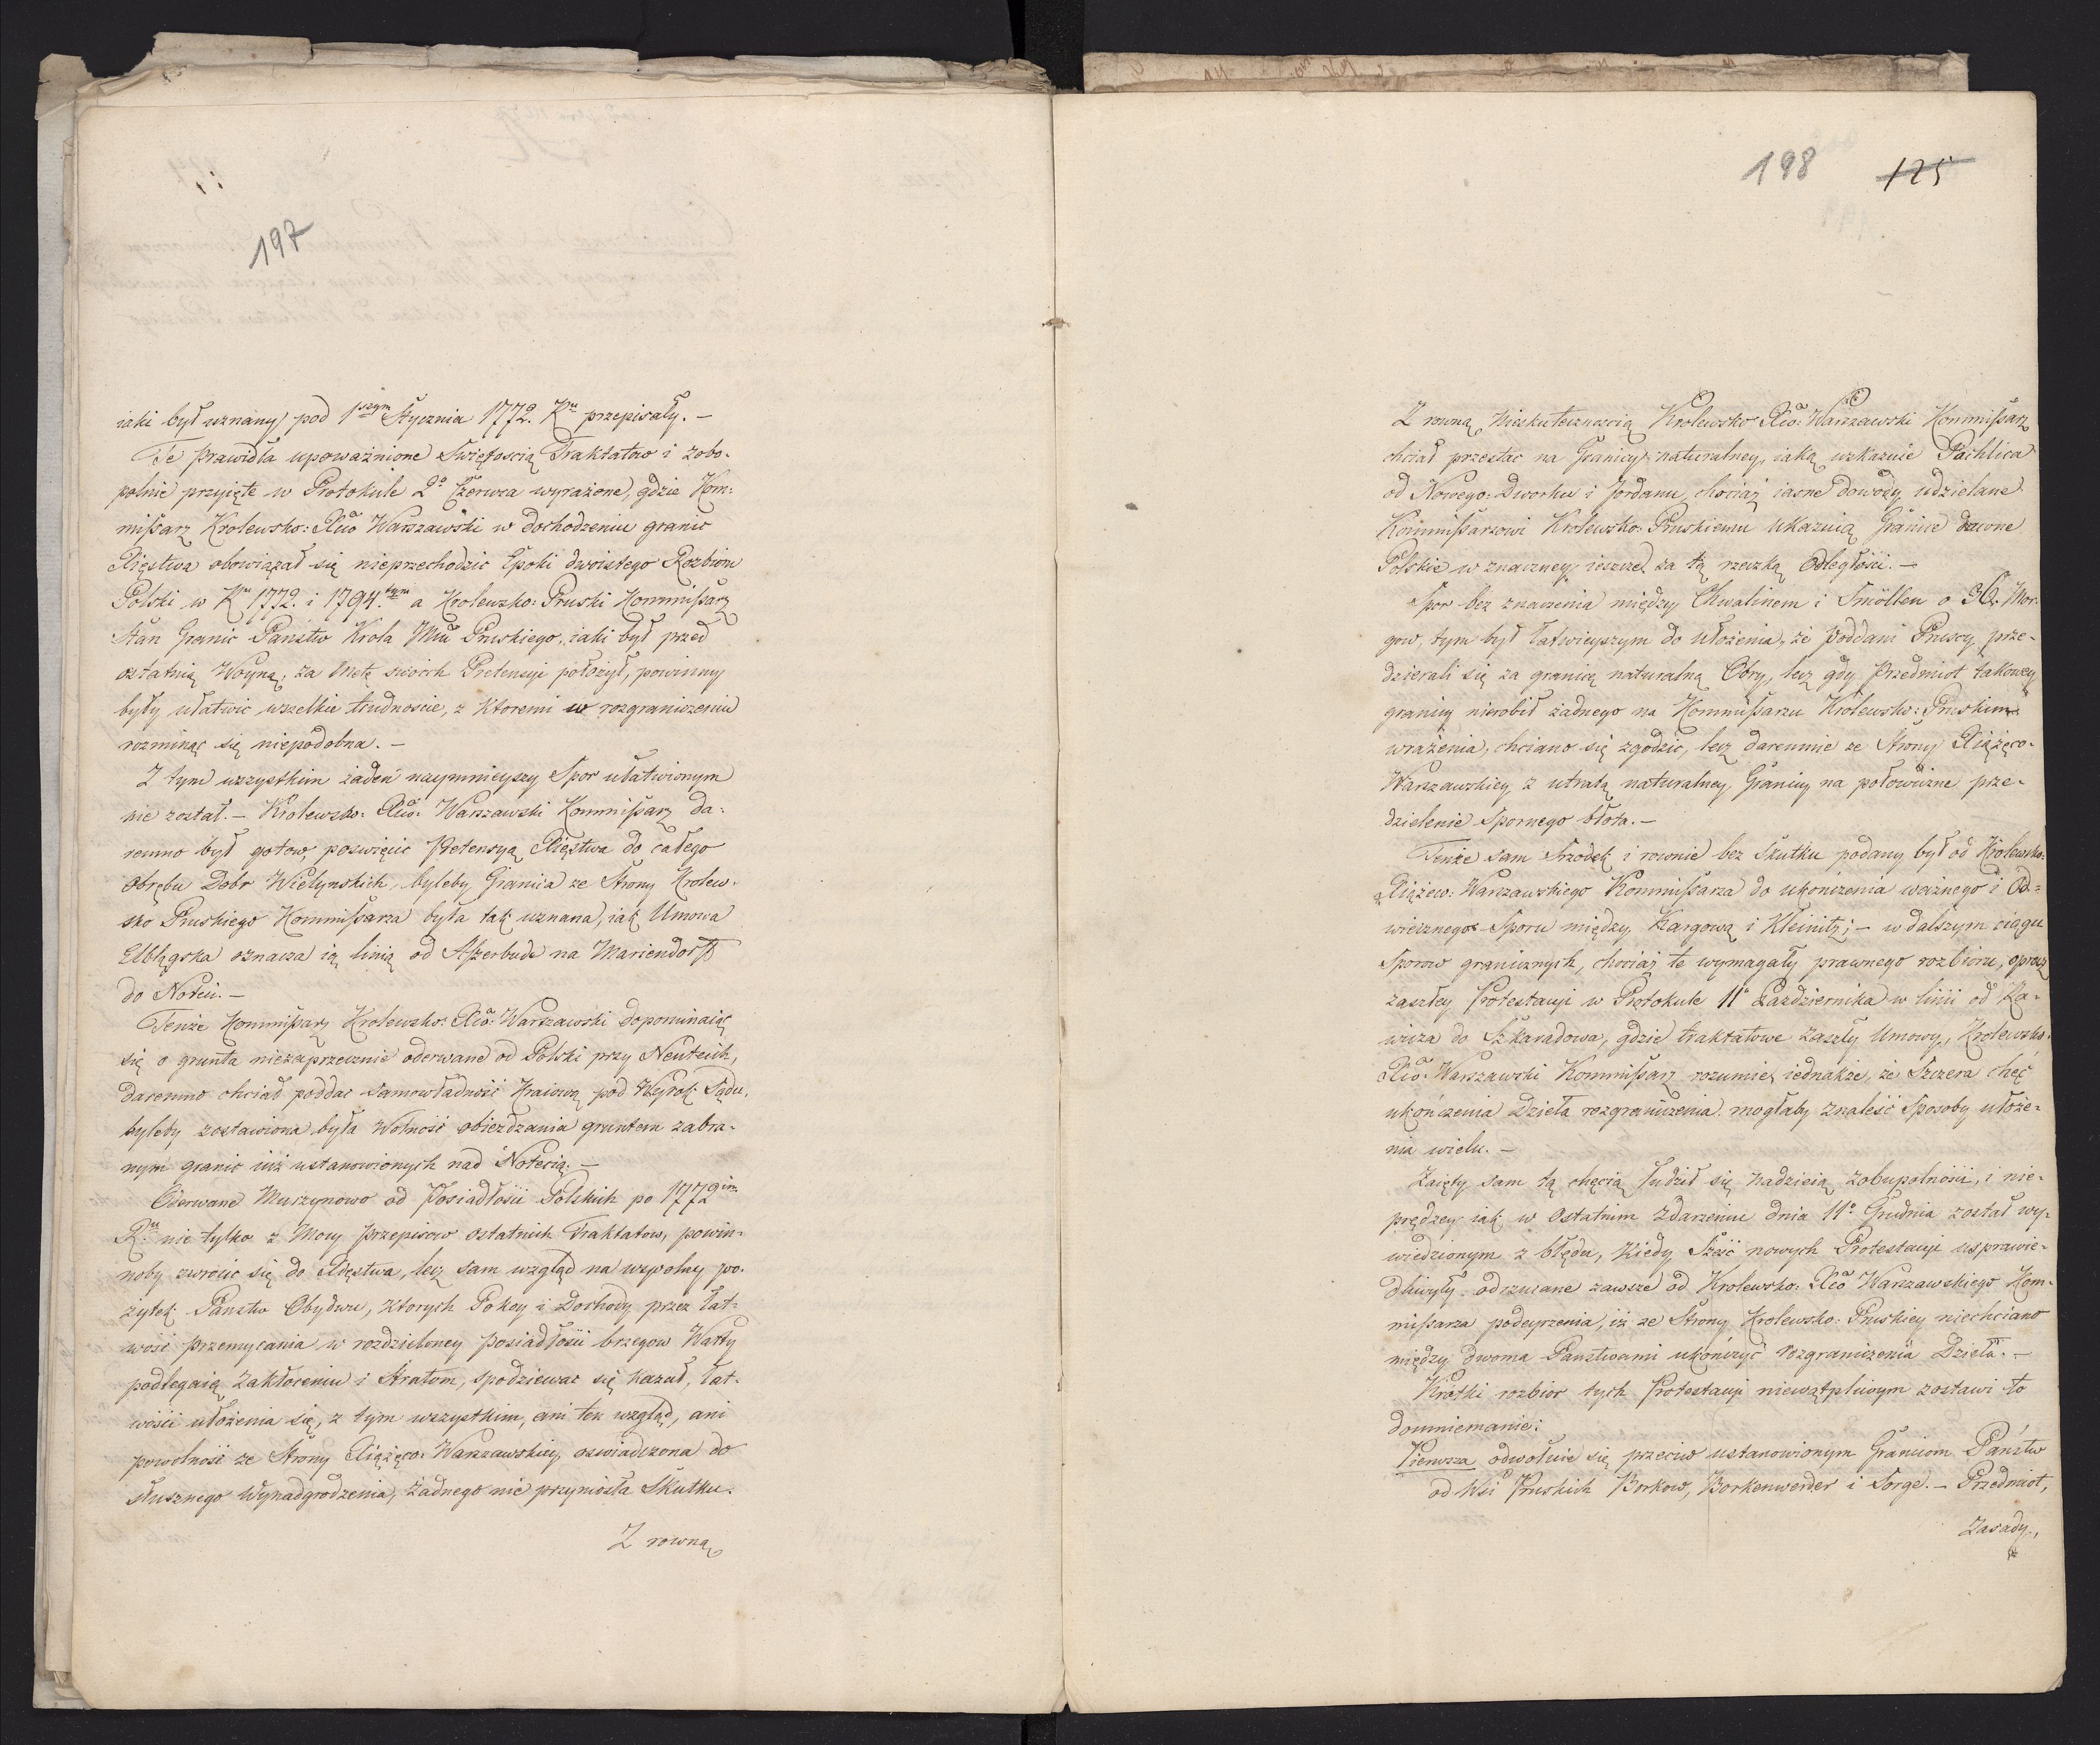 197
iaki był uznany pod 1szym Stycznia 1772. Ru przepisały. –
Te prawidła upoważnione Swiętoscią Traktatow i zobo-
polnie przyięte w Protokule 2o Czerwca wyrażone, gdzie Kom-
missarz Krolewsko: Xco Warszawski w dochodzeniu granic
Xięstwa obowiązał się nieprzechodzic Epoki dwoistego Rozbioru
Polski w Ru 1772. i 1794.tym a Krolewsko: Pruski Kommissarz
Stan Granic Panstw Krola Mci Pruskiego, iaki był przed
ostatnią Woyną, za Metę swoich Pretensyi położył, powinny
były ułatwic wszelkie trudnoscie, z Ktoremi w rozgraniczeniu
rozminąc się niepodobna. –
Z tym wszystkim żaden naymnieyszy Spor ułatwionym
nie został. – Krolewsko: Xco: Warszawski Kommissarz da-
remno był gotow, poswięcic Pretensyą Xięstwa do całego
Obrębu Dobr Wielynskich, byleby Granica ze Strony Krolew-
sko Pruskiego Kommissarza była tak uznana, iak Umowa
Elbląska oznacza ią linią od Ascherbude na Mariendorff
do Noteci. –
Tenże Kommissarz Krolewsko: Xco: Warszawski dopominaiąc
się o grunta niezaprzecznie oderwane od Polski przy Neuteich,
daremno chciał poddac Samowładność Kraiową pod Wyrok Sądu,
byleby zostawiona była Wolność obieżdzania gruntem zabra-
nym granic iuż ustanowionych nad Notecią. –
Oderwane Muszynowo od Posiadłosci Polskich po 1772im
Ru nie tylko z Mocy przepisow ostatnich Traktatow, powin-
noby zwrócic się do Xięstwa, lecz sam wzgląd na wspolny po-
żytek Panstw Obydwu, ktorych Pokoy i Dochody przez łat-
wość przemycania w rozdzieloney posiadłosci brzegow Warty
podlegaią zakłoceniu i Stratom, spodziewac się kazał, łat-
wości ułożenia się, z tym wszystkim, ani ten wzgląd, ani
powolność ze Strony Xiążęco: Warszawskiey oswiadczona do
słusznego Wynadgrodzenia, żadnego nie przyniosła Skutku.
Z rowną
198 125
Z rowną Nieskutecznoscią Krolewsko Xco: Warszawski Kommissarz
chciał przestac na Granicy naturalney, iaką wskazuie Pachlica
od Nowego: Dworku i Jordanu, chociaż iasne dowody udzielane
Kommissarzowi Krolewsko: Pruskiemu ukazuią Granice dawne
Polskie w znaczney ieszcze za tą rzeczką Odległości. –
Spor bez znaczenia między Chwalinem i Smöllen o 30. Mor-
gow, tym był łatwieyszym do ułożenia, że poddani Pruscy prze-
dzierali się za granicę naturalną Obry, lecz gdy Przedmiot takowey
granicy nierobił żadnego na Kommissarzu Krolewsko: Pruskim
wrażenia, chciano się zgodzic, lecz daremnie ze Strony Xiążęco-
Warszawskiey z utratą naturalney Granicy na połowiczne prze-
dzielenie Spornego błota. –
Tenże sam Srzodek i rownie bez Skutku podany był od Krolewsko:
Xiążew: Warszawskiego Kommissarza do ukończenia ważnego i Od-
wiecznego Sporu między Kargową i Kleinitz; – w dalszym ciągu
Sporow granicznych, chociaż te wymagały prawnego rozbioru, oprocz
zaszłey Protestacyi w Protokule 11o Pazdziernika w linii od Ka-
wicza do Szkaradowa, gdzie traktatowe zaszły Umowy, Krolewsko.
Xco: Warszawski Kommissarz rozumie iednakże, że Szczera chęć
ukończenia Dzieła rozgraniczenia mogłaby znaleść Sposoby ułoże-
nia wielu. –
Zaięty sam tą chęcią łudził się nadzieią zobupolności, i nie-
prędzey iak w Ostatnim zdarzeniu dnia 11o Grudnia został wy-
wiedzionym z błędu, Kiedy Sześć nowych Protestacyi usprawie-
dliwiły odrzucane zawsze od Krolewsko: Xco Warszawskiego Kom-
missarza podeyrzenia, iż ze Strony Krolewsko: Pruskiey niechciano
między dwoma Panstwami ukończyć rozgraniczenia Dzieła. –
Krotki rozbior tych Protestacyi niewątpliwym zostawi to
domniemanie:
Pierwsza odwołuie się przeciw ustanowionym Granicom Państw
od Wsi Pruskich Borkow, Borkenwerder i Sorge. – Przedmiot,
Zasady,